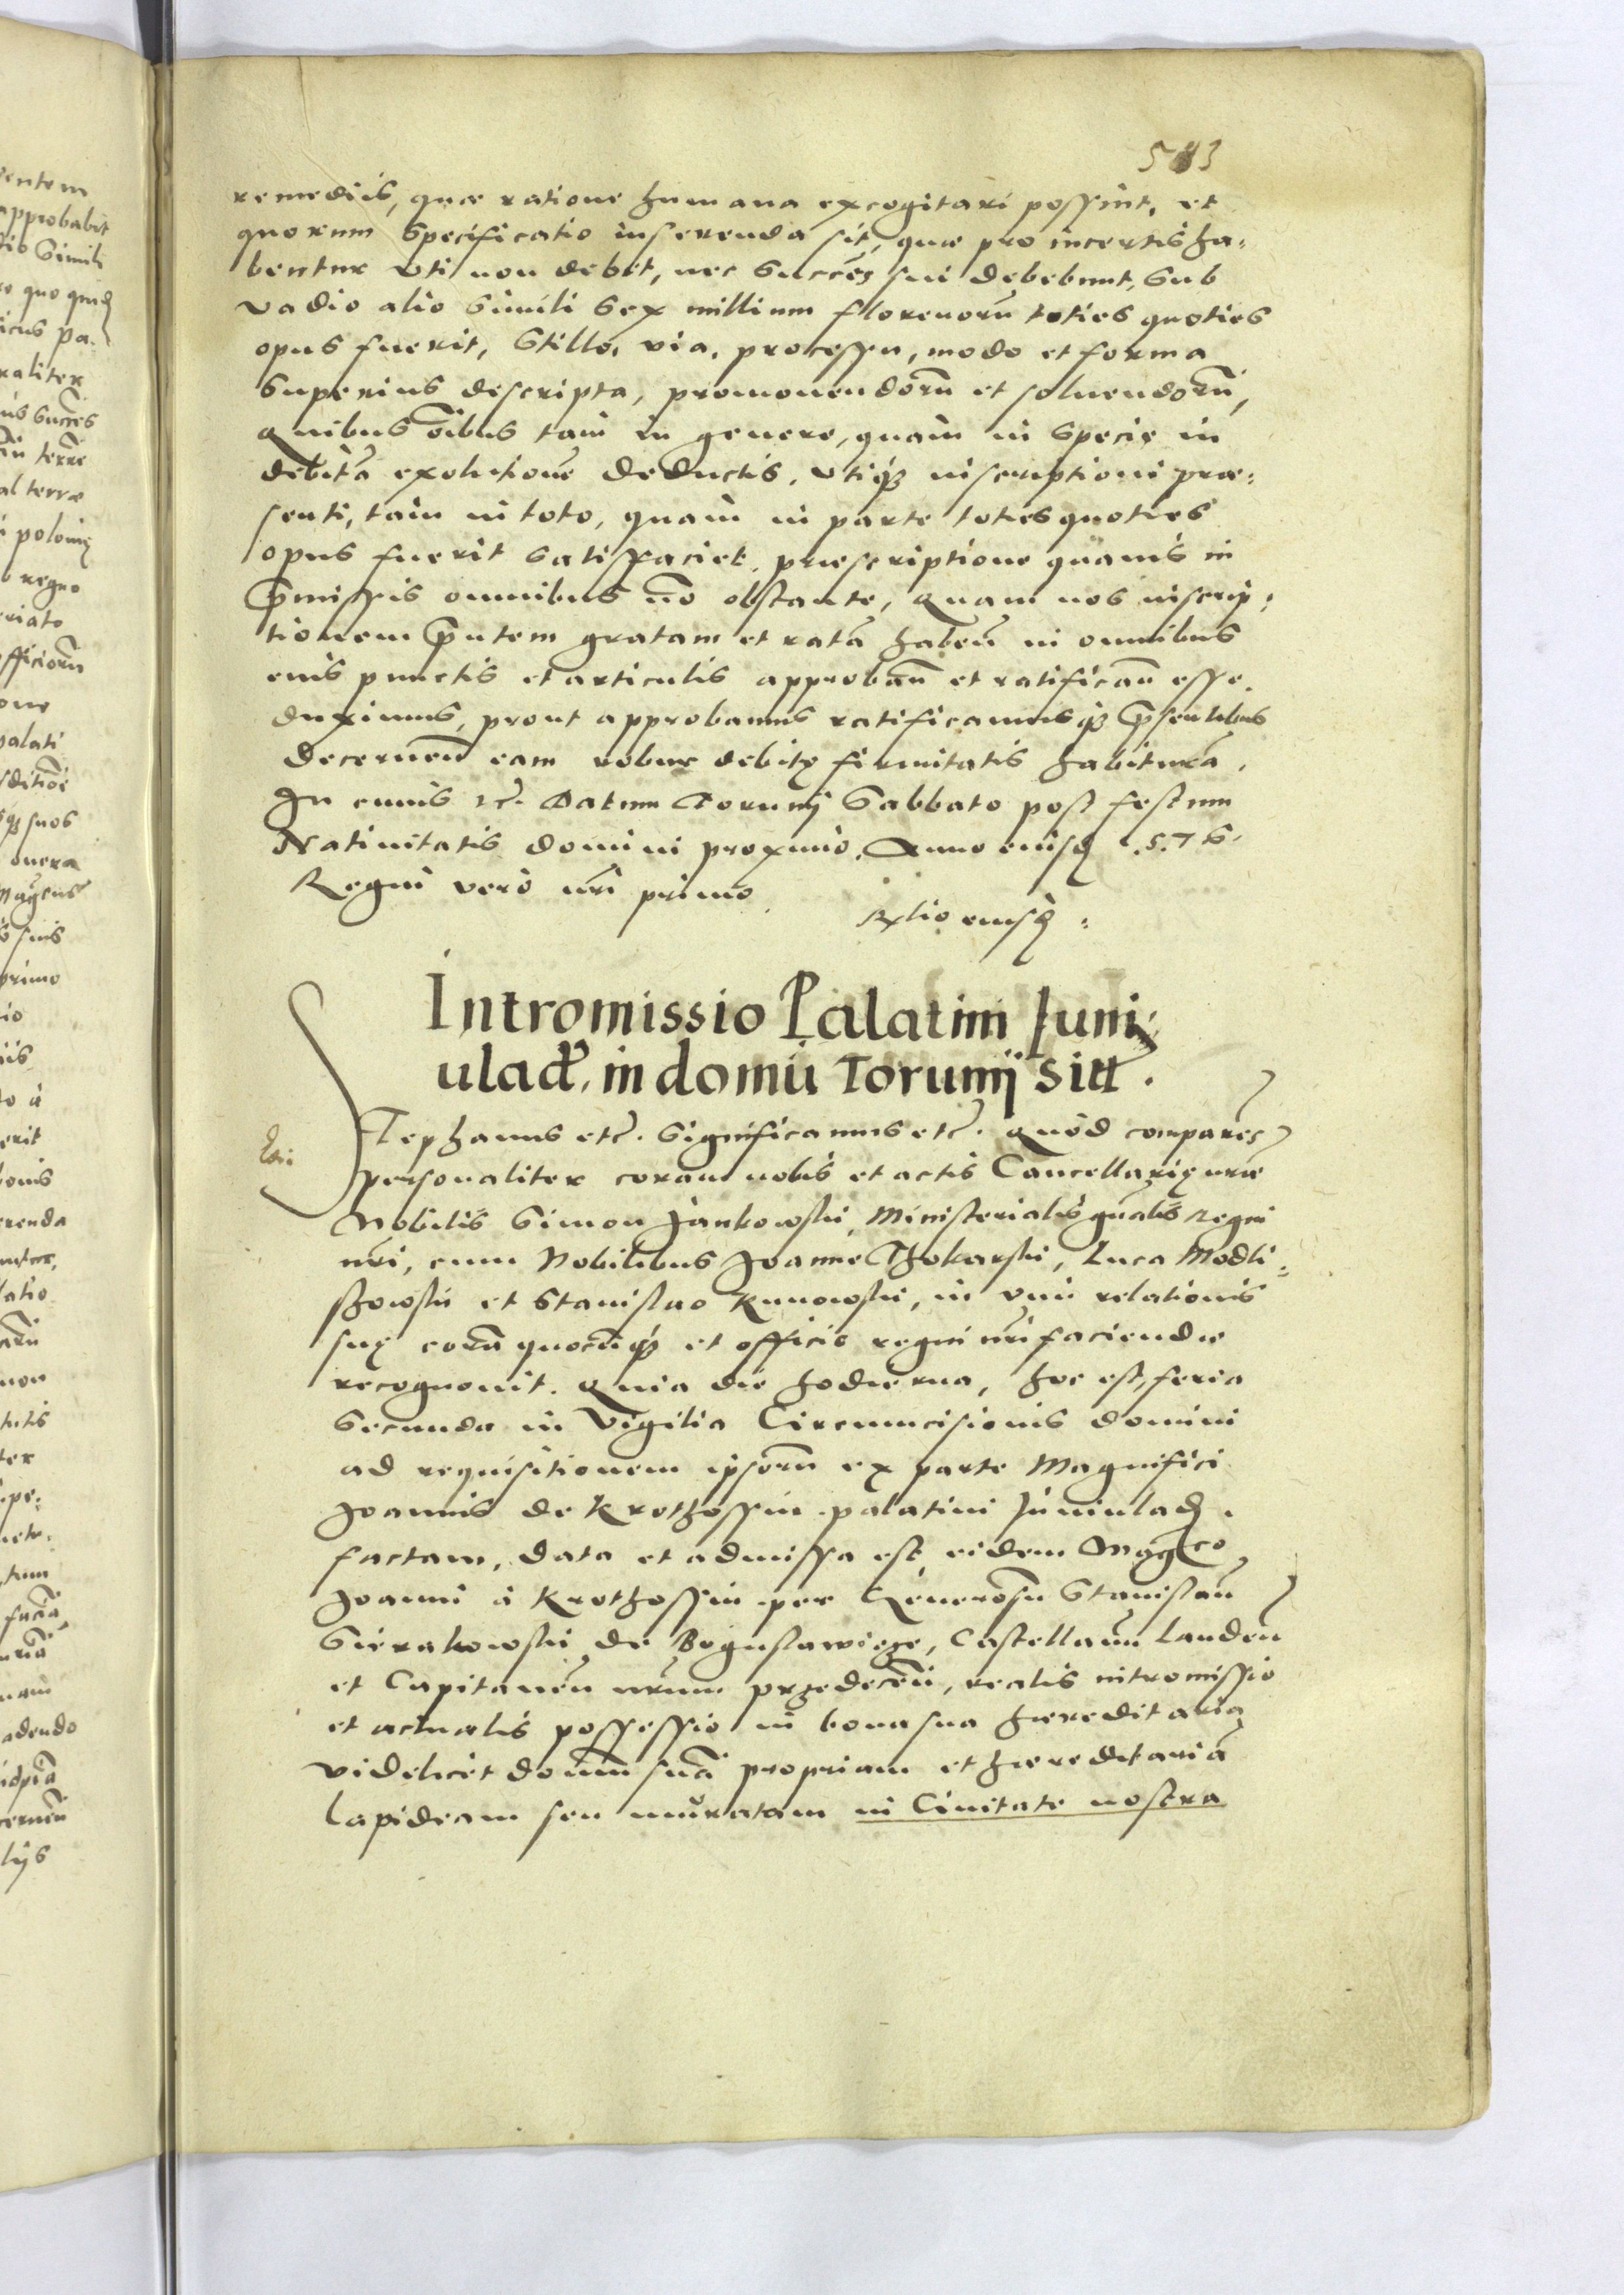 remediis, quæ ratione humana excogitari possint, et
quorum Specificatio inserenda sit, quæ pro incertis ha:
bentur vti non debet, nec Successs sui debebunt, Sub
vadio alio Simili Sex millium florenorū toties quoties
opus fuerit, Stillo, via, processu, modo et forma
Superius descripta, promouendorū et soluendorū,
Quibus oībus tam in genere, quàm in Specie in
debitā exolutionē deductis, vtiqȝ inscriptioni præ:
senti, tàm in toto, quàm in parte toties quoties
opus fuerit Satisfaciet, præscriptione quauis in
pmissis omnibus nō obstante, Quam nos inscrip:
tionem pntem gratam et ratā habeñ in omnibus
eius punctis et articulis approbañ et ratificañ esse
duximus, prout approbamus ratificamusqȝ pñsentibus
decerneñ eam robur debitę firmitatis habiturā.
In cuius rē. Datum Torunij Sabbato post festum
Natiuitatis domini proximo. Anno eiusd 1.5.76.
Regni verò nr̄i primo.
Rtlio eiusd:
Intromissio Palatini Iuni
ulad. in domū Torunij sitt.
Stephanus etc̄. Significamus etc̄. Quòd comparēs
personaliter coram nobis et actis Cancellarię nrae
Nobilis Simon Jankowski Ministerialis gñalis Regni
nri, cum Nobilibus Joanne Thokarski, Luca Modli:
szowski et Stanislao Kunowski, in vim relationis
suę corā quocūqȝ et officio regni nri faciendæ
recognouit. Quia die hodierna, hoc est, feria
Secunda in Vigilia Circumcisionis domini
ad requisitionem ipsorū ex parte Magnifici
Joannis de Krothossin palatini Juniulad.
factam, data et admissa est, eidem Magco
Joanni à Krothossin per Generosū Stanislaū
Sierakowski de Boguslawicze, Castellanū Landeñ
et Capitaneū nrum przedeceñ, realis intromissio
et actualis possessio in bona sua hæreditaria
videlicet domū suā propriam et hæreditariā
lapideam seu muratam in Ciuitate nostra